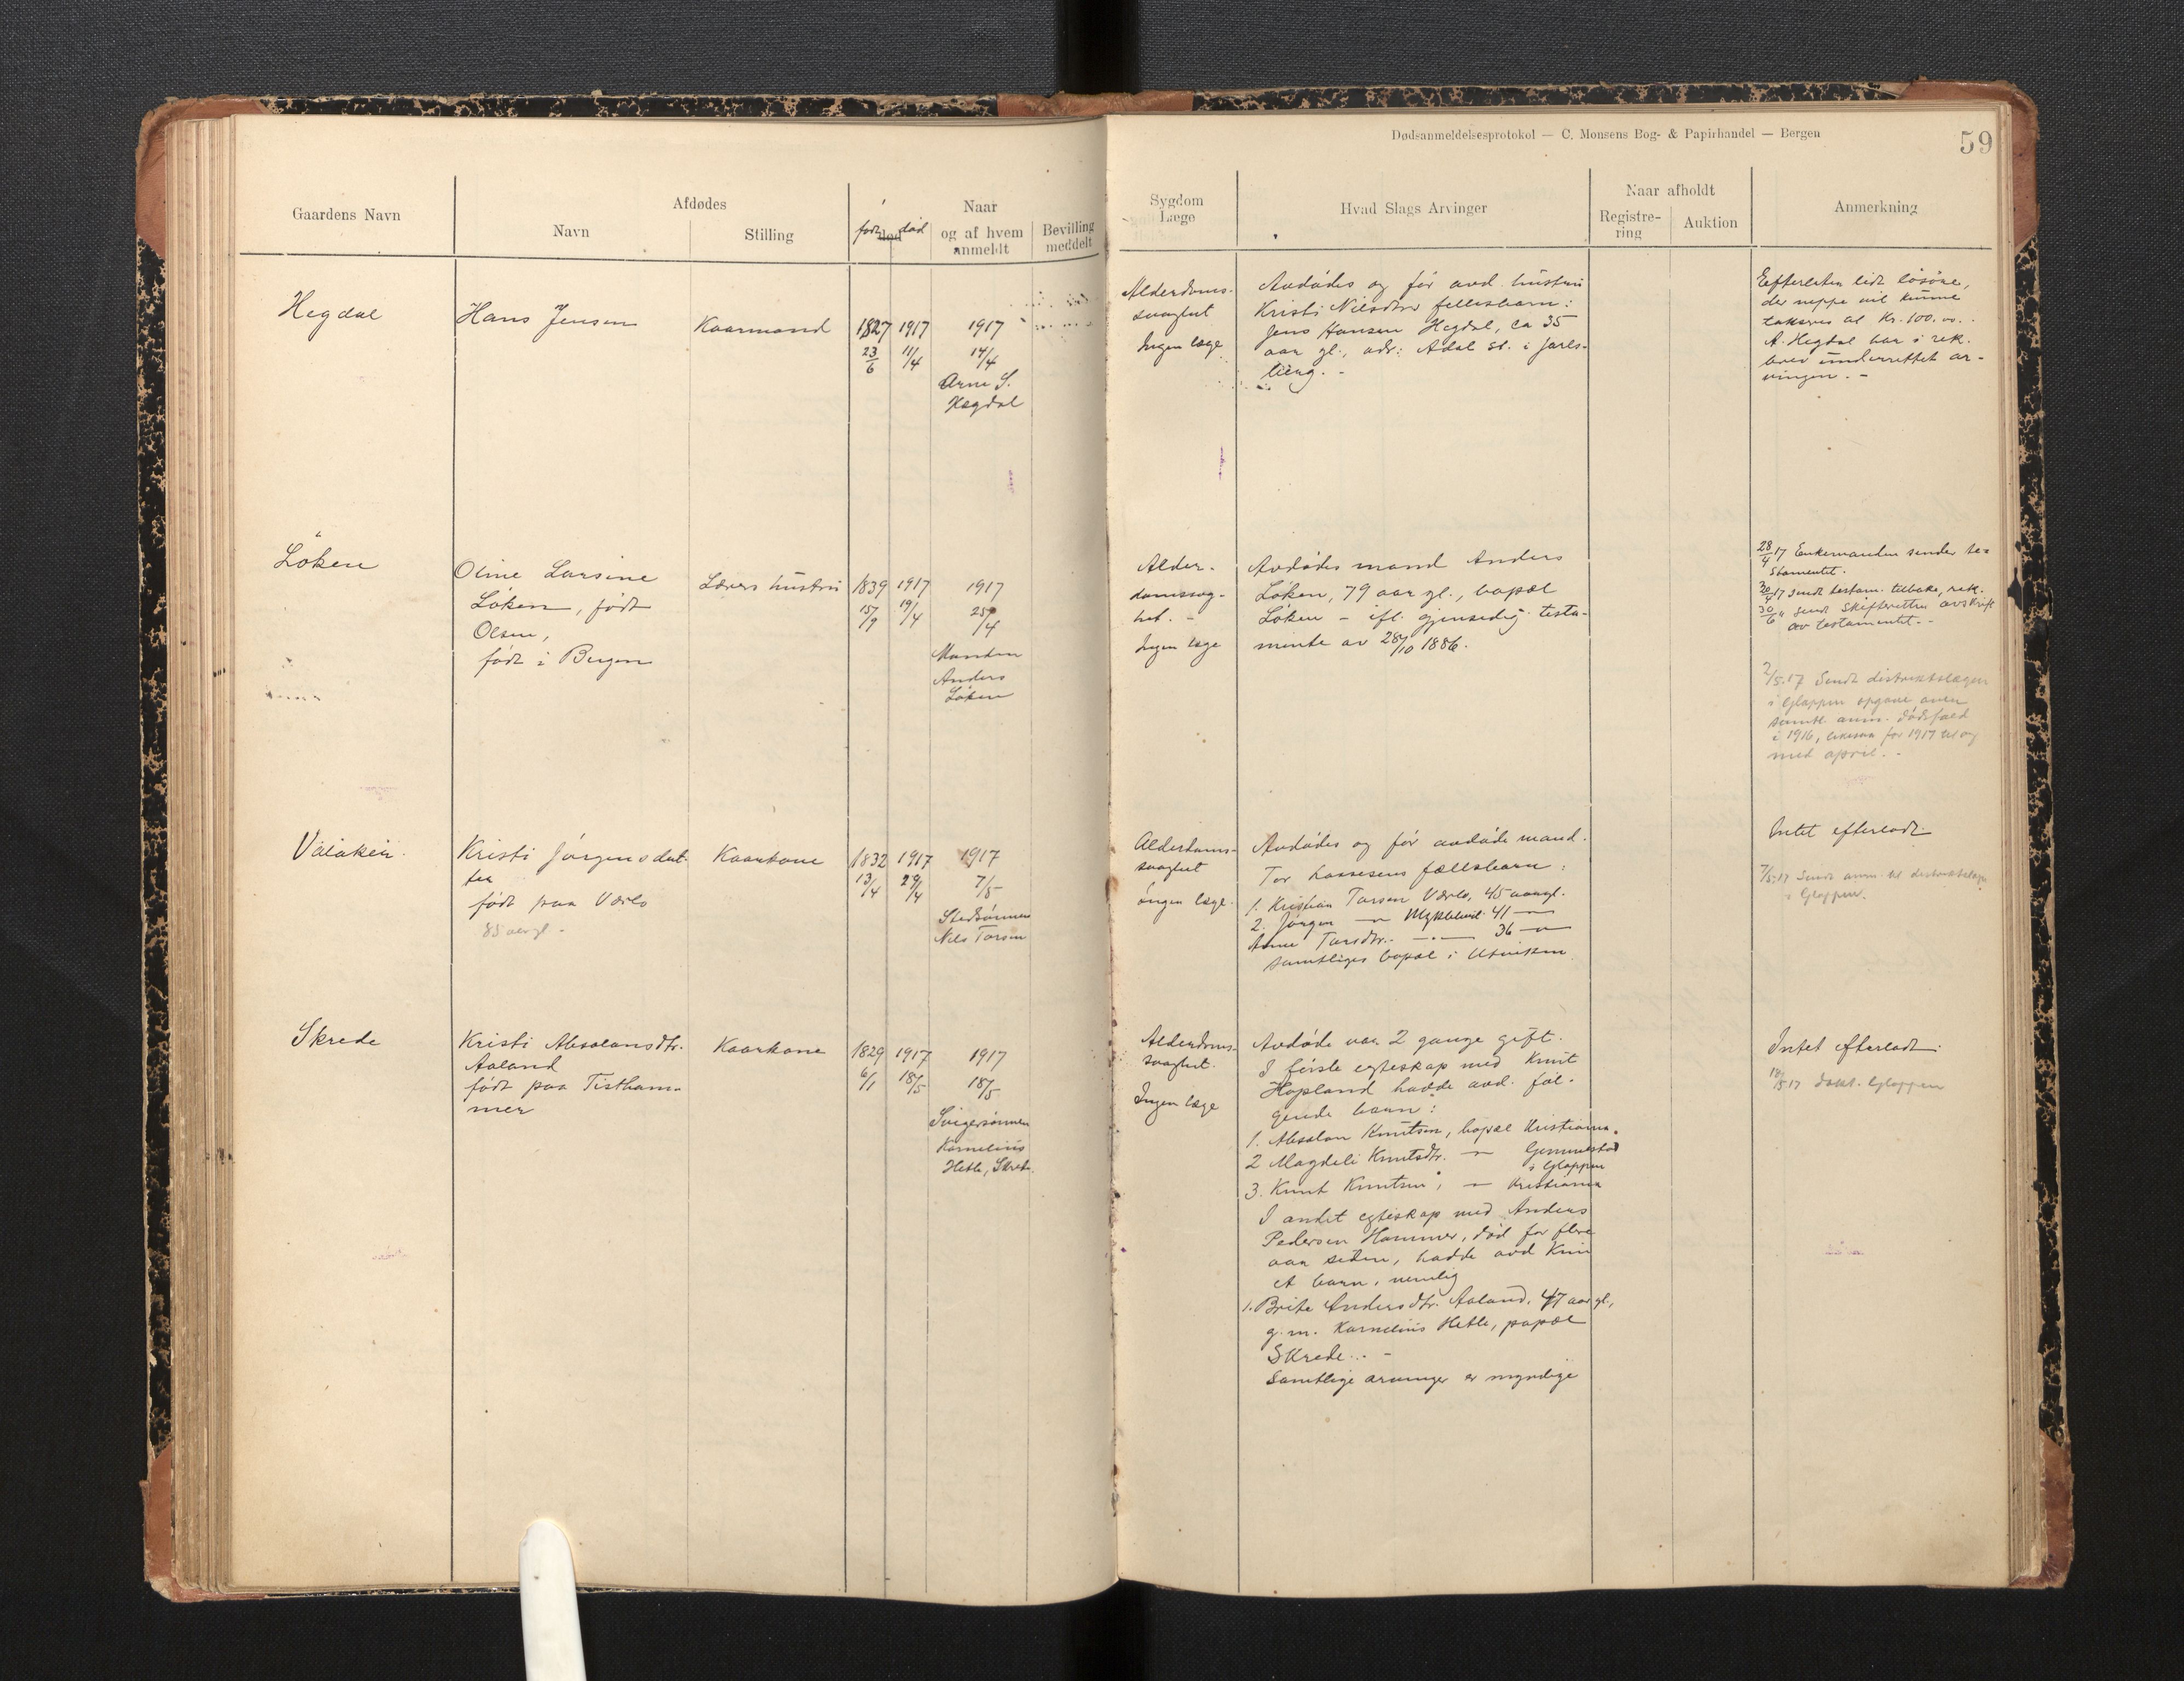 Dødsanmeldelsesprotokol — C. Monsens Bog- & Papirhandel — Bergen
59
Gaardens Navn
Afdødes
Navn
Stilling
født
død
død
Naar
og af hvem
anmeldt
Bevilling
meddelt
Sygdom
Læge
Hvad Slags Arvinger
Naar afholdt
Registre-
ring
Auktion
Anmerkning
Hegdal
Hans Jensen
Kaarmand
1827 1917
23/6 11/4
1917
14/4
Arne S.
Hegdal
Alderdoms-
svaghet
Ingen læge
Avdødes og før avd. hustru
Kristi Nilsdtrs fellesbarn:
Jens Hansen Hegdal, ca 35
aar gl., adr: Adal st. i Jarls-
berg. -
Efterlaten lidt løsøre,
der neppe vil kunne
takseres at Kr. 100.00.
A. Hegdal har i rek.
brev underrettet ar-
vingen. -
Løken
Oline Larsine
Løken, født
Olsen,
født i Bergen
Lærers hustru
1839 1917
15/9 19/4
1917
25/4
Manden
Anders
Løken
Alder-
domssvag-
het. -
Ingen læge
Avdødes mand Anders
Løken, 79 aar gl., bopæl
Løken - ifl. gjensidig testa-
mente av 28/10 1886.
28/4 17 Enkemanden sender te-
stamentet.
30/4 17 sendt testam. tilbake, rek.
30/6 " sendt Skifteretten avskrift
av testamentet. -
2/5.17 Sendt distriktslægen
i Gloppen opgave over
samtl. anm. dødsfald
i 1916, likesaa for 1917 til og
med april. -
Kristi Jørgensdat-
ter
født paa
85 aar gl. -
Kaarkone
1832 1917
13/4 29/4
1917
7/5
Stedsønnen
Nils Torsen
Alderdoms-
svaghet
Ingen læge
Avdødes og før avdøde mand
Tor fællesbarn:
1. Kristian Torsen 45 aar gl.
2. Jørgen — Myklebust 41 —
Anne Torsdtr. — 36 —
samtliges bopæl i Utviken
Intet efterladt
7/5.17 Sendt anm. til distriktslæge
i Gloppen.
Skrede
Kristi Absalonsdtr.
Aaland
født paa Tistham-
mer
Kaarkone
1829 1917
6/1 18/5
1917
18/5
Svigersønnen
Kornelius
Hetle, Skrede
Alderdoms-
svaghet.
Ingen læge
Avdøde var 2 gange gift.
I første egteskap med Knut
Hopland hadde avd. føl-
gende barn:
1. Absalon Knutsen, bopæl Kristiania.
2 Magdeli Knutsdtr. — Gimmestad
i Gloppen
3. Knut Knutsen, — Kristiania
I andet egteskap med Anders
Pedersen Hammer, død for flere
aar siden, hadde avd kun
et barn, nemlig
1. Brite Andersdtr. Aaland, 47 aar gl.,
g. m. Kornelius Hetle, bopæl
Skrede. -
Samtlige arvinger er myndige
Intet efterladt.
18/5 17 Gloppen